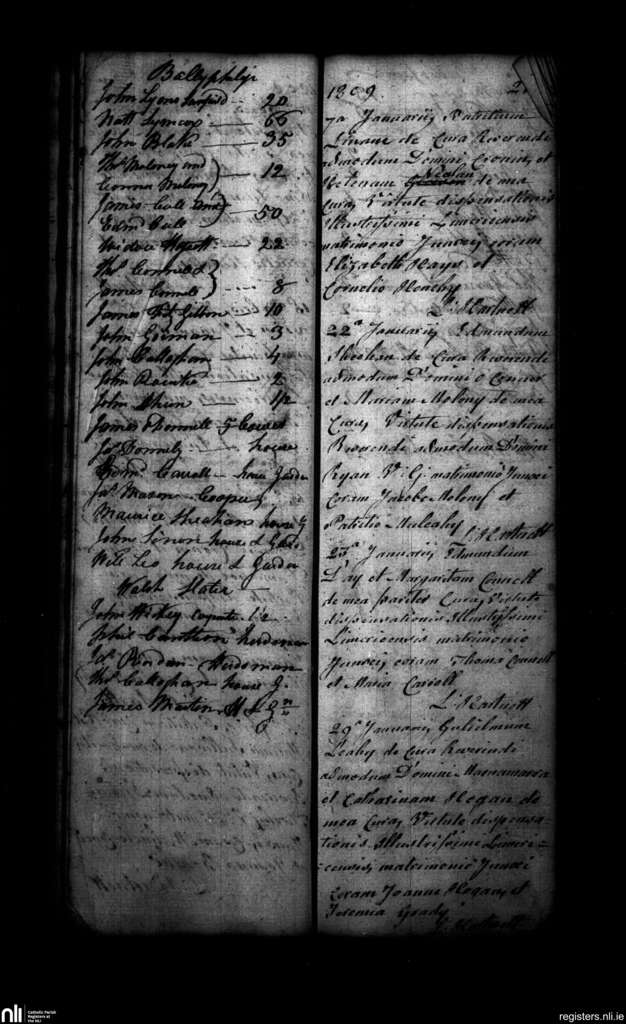 Ballyphilip
John Lyons 20
Natt Lyons 66
John Blake 35
Thos Maloney and
Connor Malony 12
James Cull and
Edmd Cull 50
Widow 22
Thos Connell &
James Connell 8
James Fitz Gibbon 10
John Gorman 3
John Callaghan 4
John 2
John 1/2
James Donnell 5
Jas Donnely house
Edmd Carroll house Garden
Jas Mason Cooper
Maurice Sheehans house
John Linon house & Gard
Will Leo house & Garden
Walsh Slater
John Hickey carpenter
Phil Herdsman
Jas Riordan Herdsman
Thos Callaghan house G.
James Martin H & Gn
1809 2
7a Januarii, Patritium
de Cura Reverendi
admodum Domini Cronin, et
Helenam Neolan de mea
Cura, Virtute dispensationis
Illustrissimi Limericensis
matrimonio Junxi, coram
Elizabeth Hays et
Cornelio Heachy
L: Hartnett
22a Januarii, Edmundum
de Cura Reverendi
admodum Domini O Connor
et Mariam Molony de mea
Cura, Virtute dispensationis
Reverendi admodum Domini
Ryan V: G: matrimonio Junxi
Coram Jacobo Molony et
Patritio Mulcahy
L: Hartnett
23a Januarii, Edmundum
Day et Margaritam Connell
de mea pariter Cura, Virtute
dispensationis Illustrissimi
Limericensis matrimonio
Junxi, coram Thoma Connell
et Maria Carroll
L: Hartnett
29a Januarii, Gulielmum
Leahy de Cura Reverendi
admodum Domini Macnamara
et Catharinam Hogan de
mea Cura, Virtute dispensa-
tionis Illustrissimi Limeri-
-censis, matrimonio Junxi
Coram Joanne Hogan, et
Jeremia Grady
L: Hartnett
nli
Catholic Parish
Registers at
the NLI
registers.nli.ie